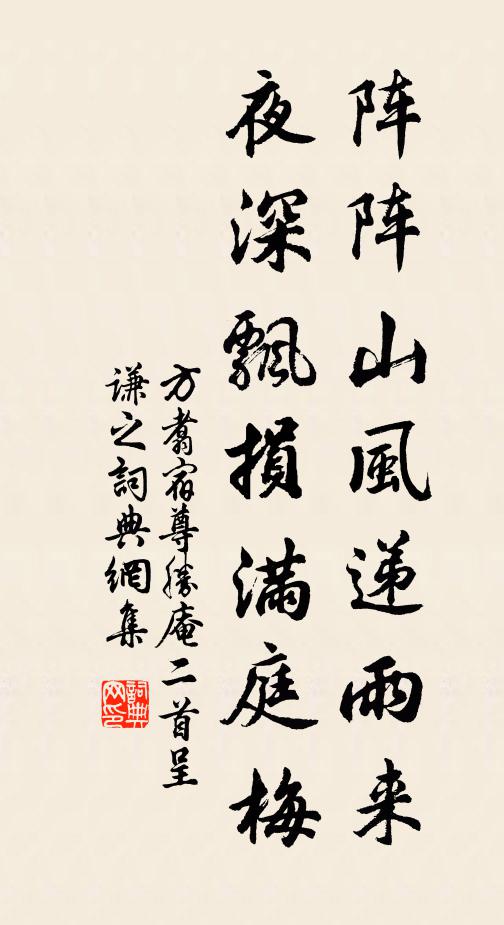 阵阵山風递雨来
夜深飄損滿庭梅
方翥宿尊勝庵二首呈
谦之詞典網集
詞典网印